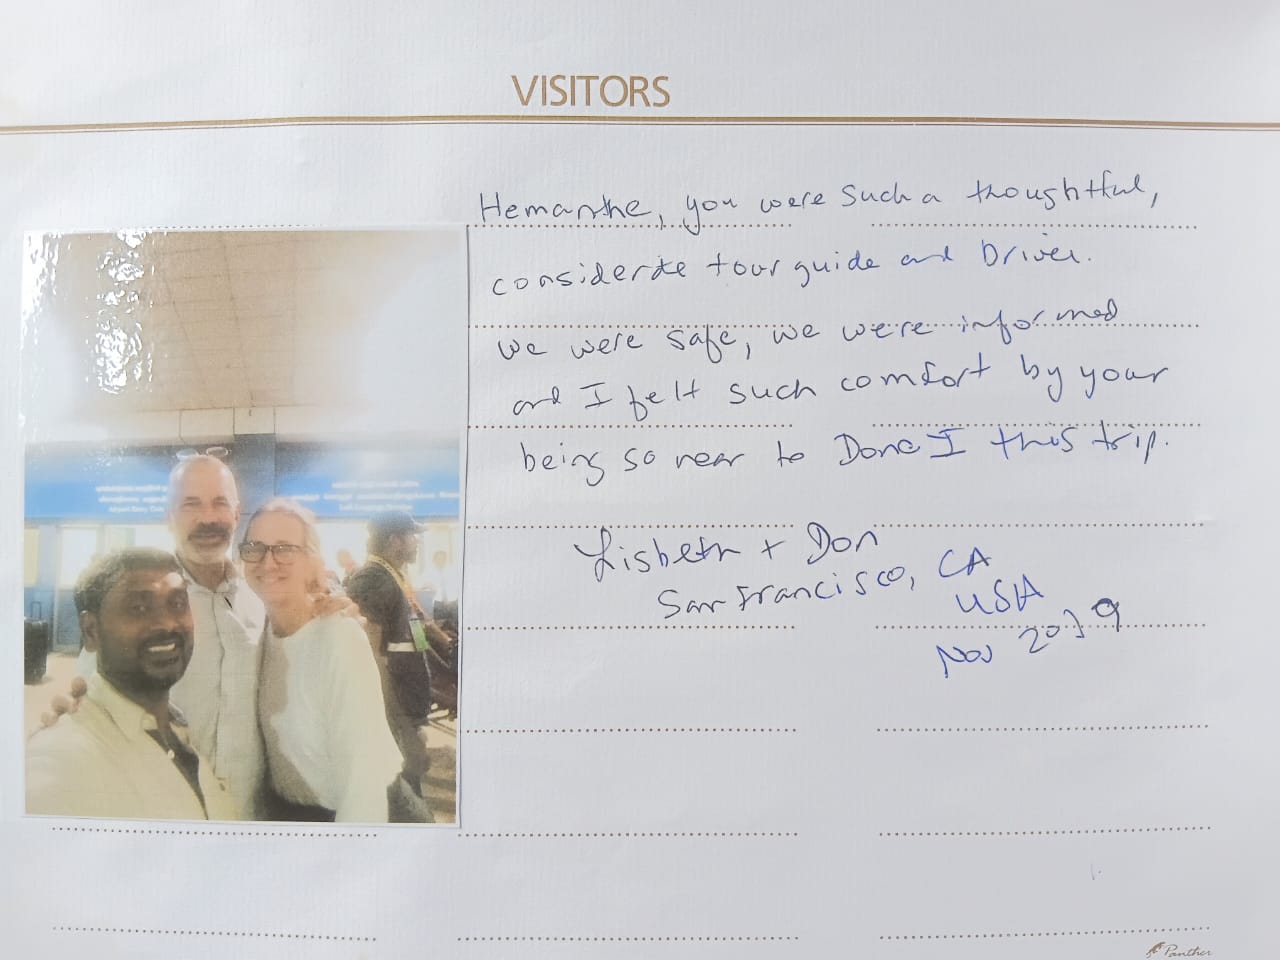 VISITORS
Hemanthe, you were such a thoughtful,
considerate tour guide and Driver.
we were safe, we were informed
and I felt such comfort by your
being so near to Don & I this trip.
Lisbeth + Don
San Francisco, CA
USA
Nov 2019
Panther